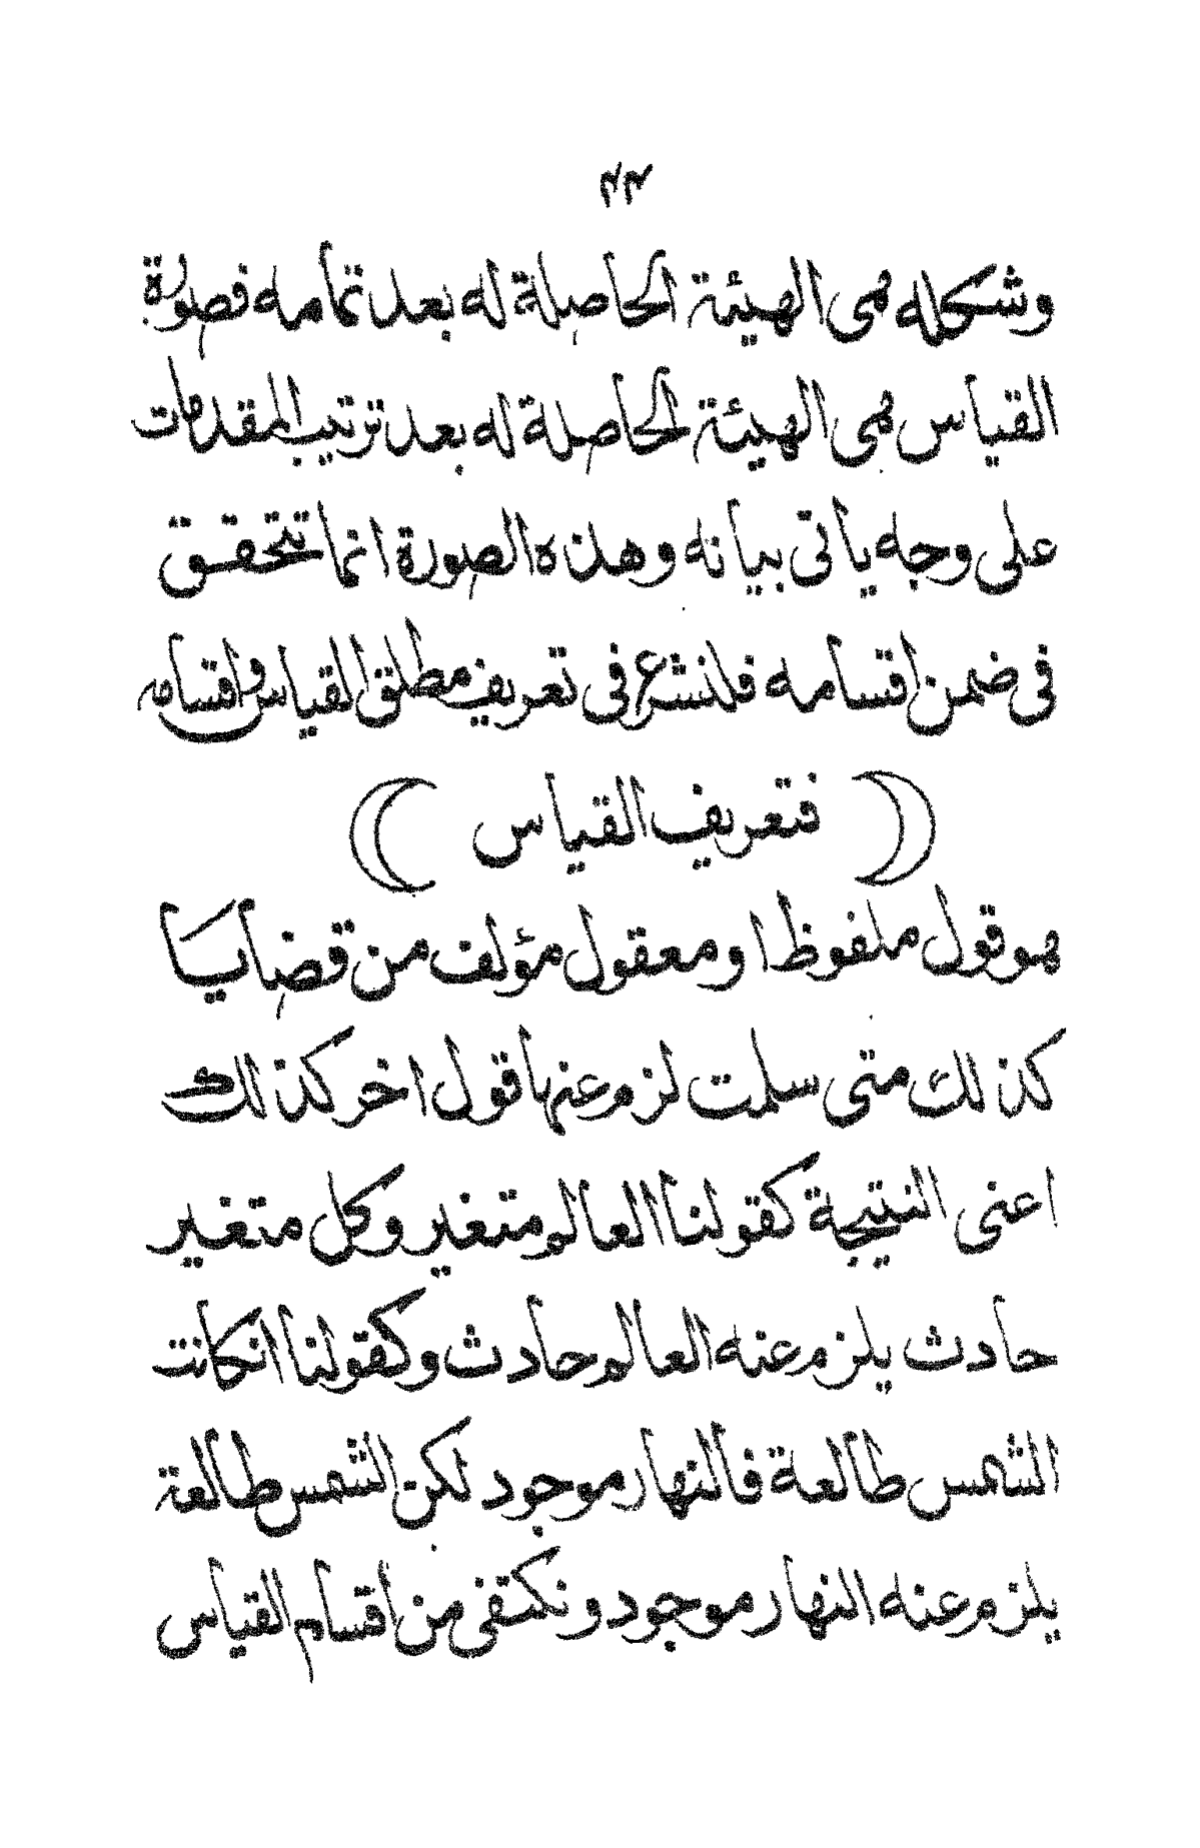 ٢٣
وشكله هى الهيئة الحاصلة له بعد تمامه فصورة
القياس هى الهيئة الحاصلة له بعد ترتيب المقدمات
على وجه يأتى بيانه وهذه الصورة انما تتحقق
فى ضمن اقسامه فلنشرع فى تعريف مطلق القياس واقسامه
( فتعريف القياس )
هو قول ملفوظ او معقول مؤلف من قضايا
كذلك متى سلمت لزم عنها قول اخر كذلك
اعنى النتيجة كقولنا العالم متغير وكل متغير
حادث يلزم عنه العالم حادث وكقولنا انكانت
الشمس طالعة فالنهار موجود لكن الشمس طالعة
يلزم عنه النهار موجود ونكتفى من أقسام القياس